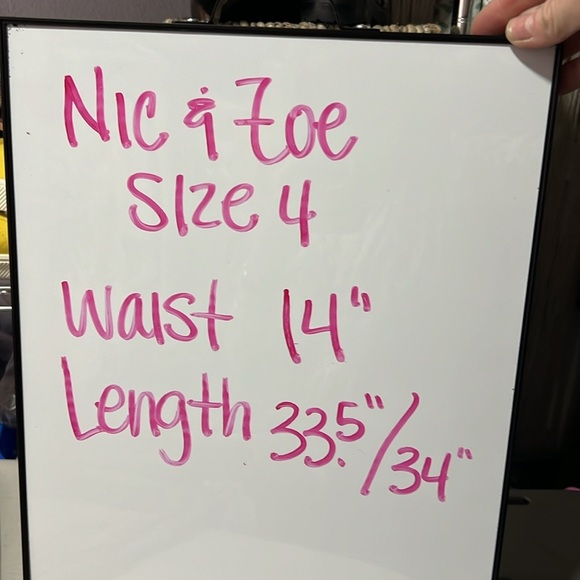 Nic & Zoe
Size 4
Waist 14"
Length 33.5"/34"